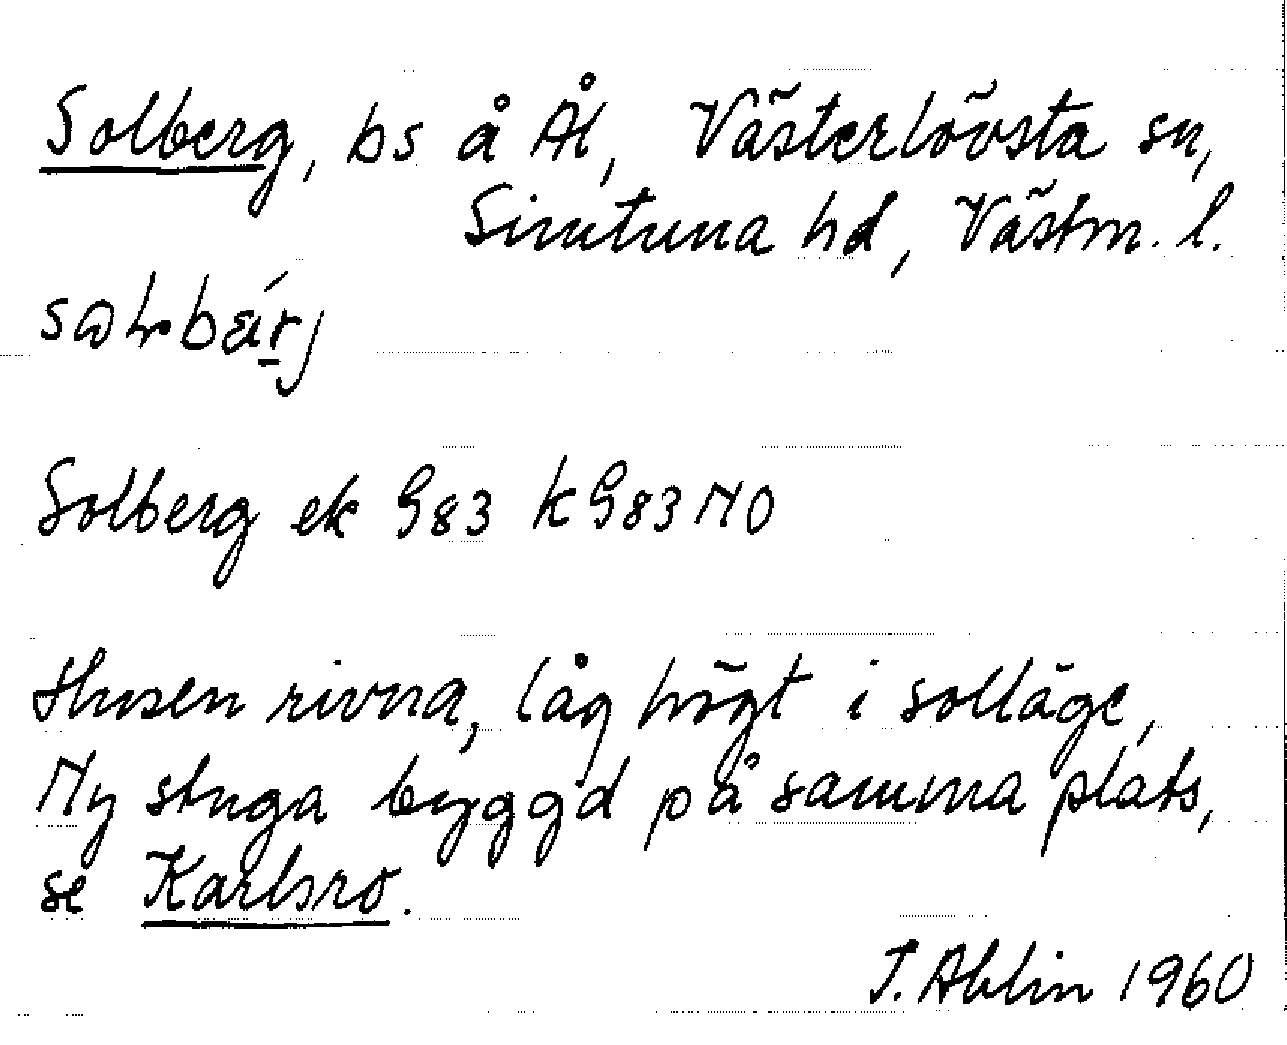 Solberg, bs å Ål, Västerlövsta sn,
Simtuna hd, Västm. l.
Solberg ek G83 kG83 NO
Husen rivna, låg högt i solläge,
Ny stuga byggd på samma plats,
se Karlsro.
T. Ahlin 1960